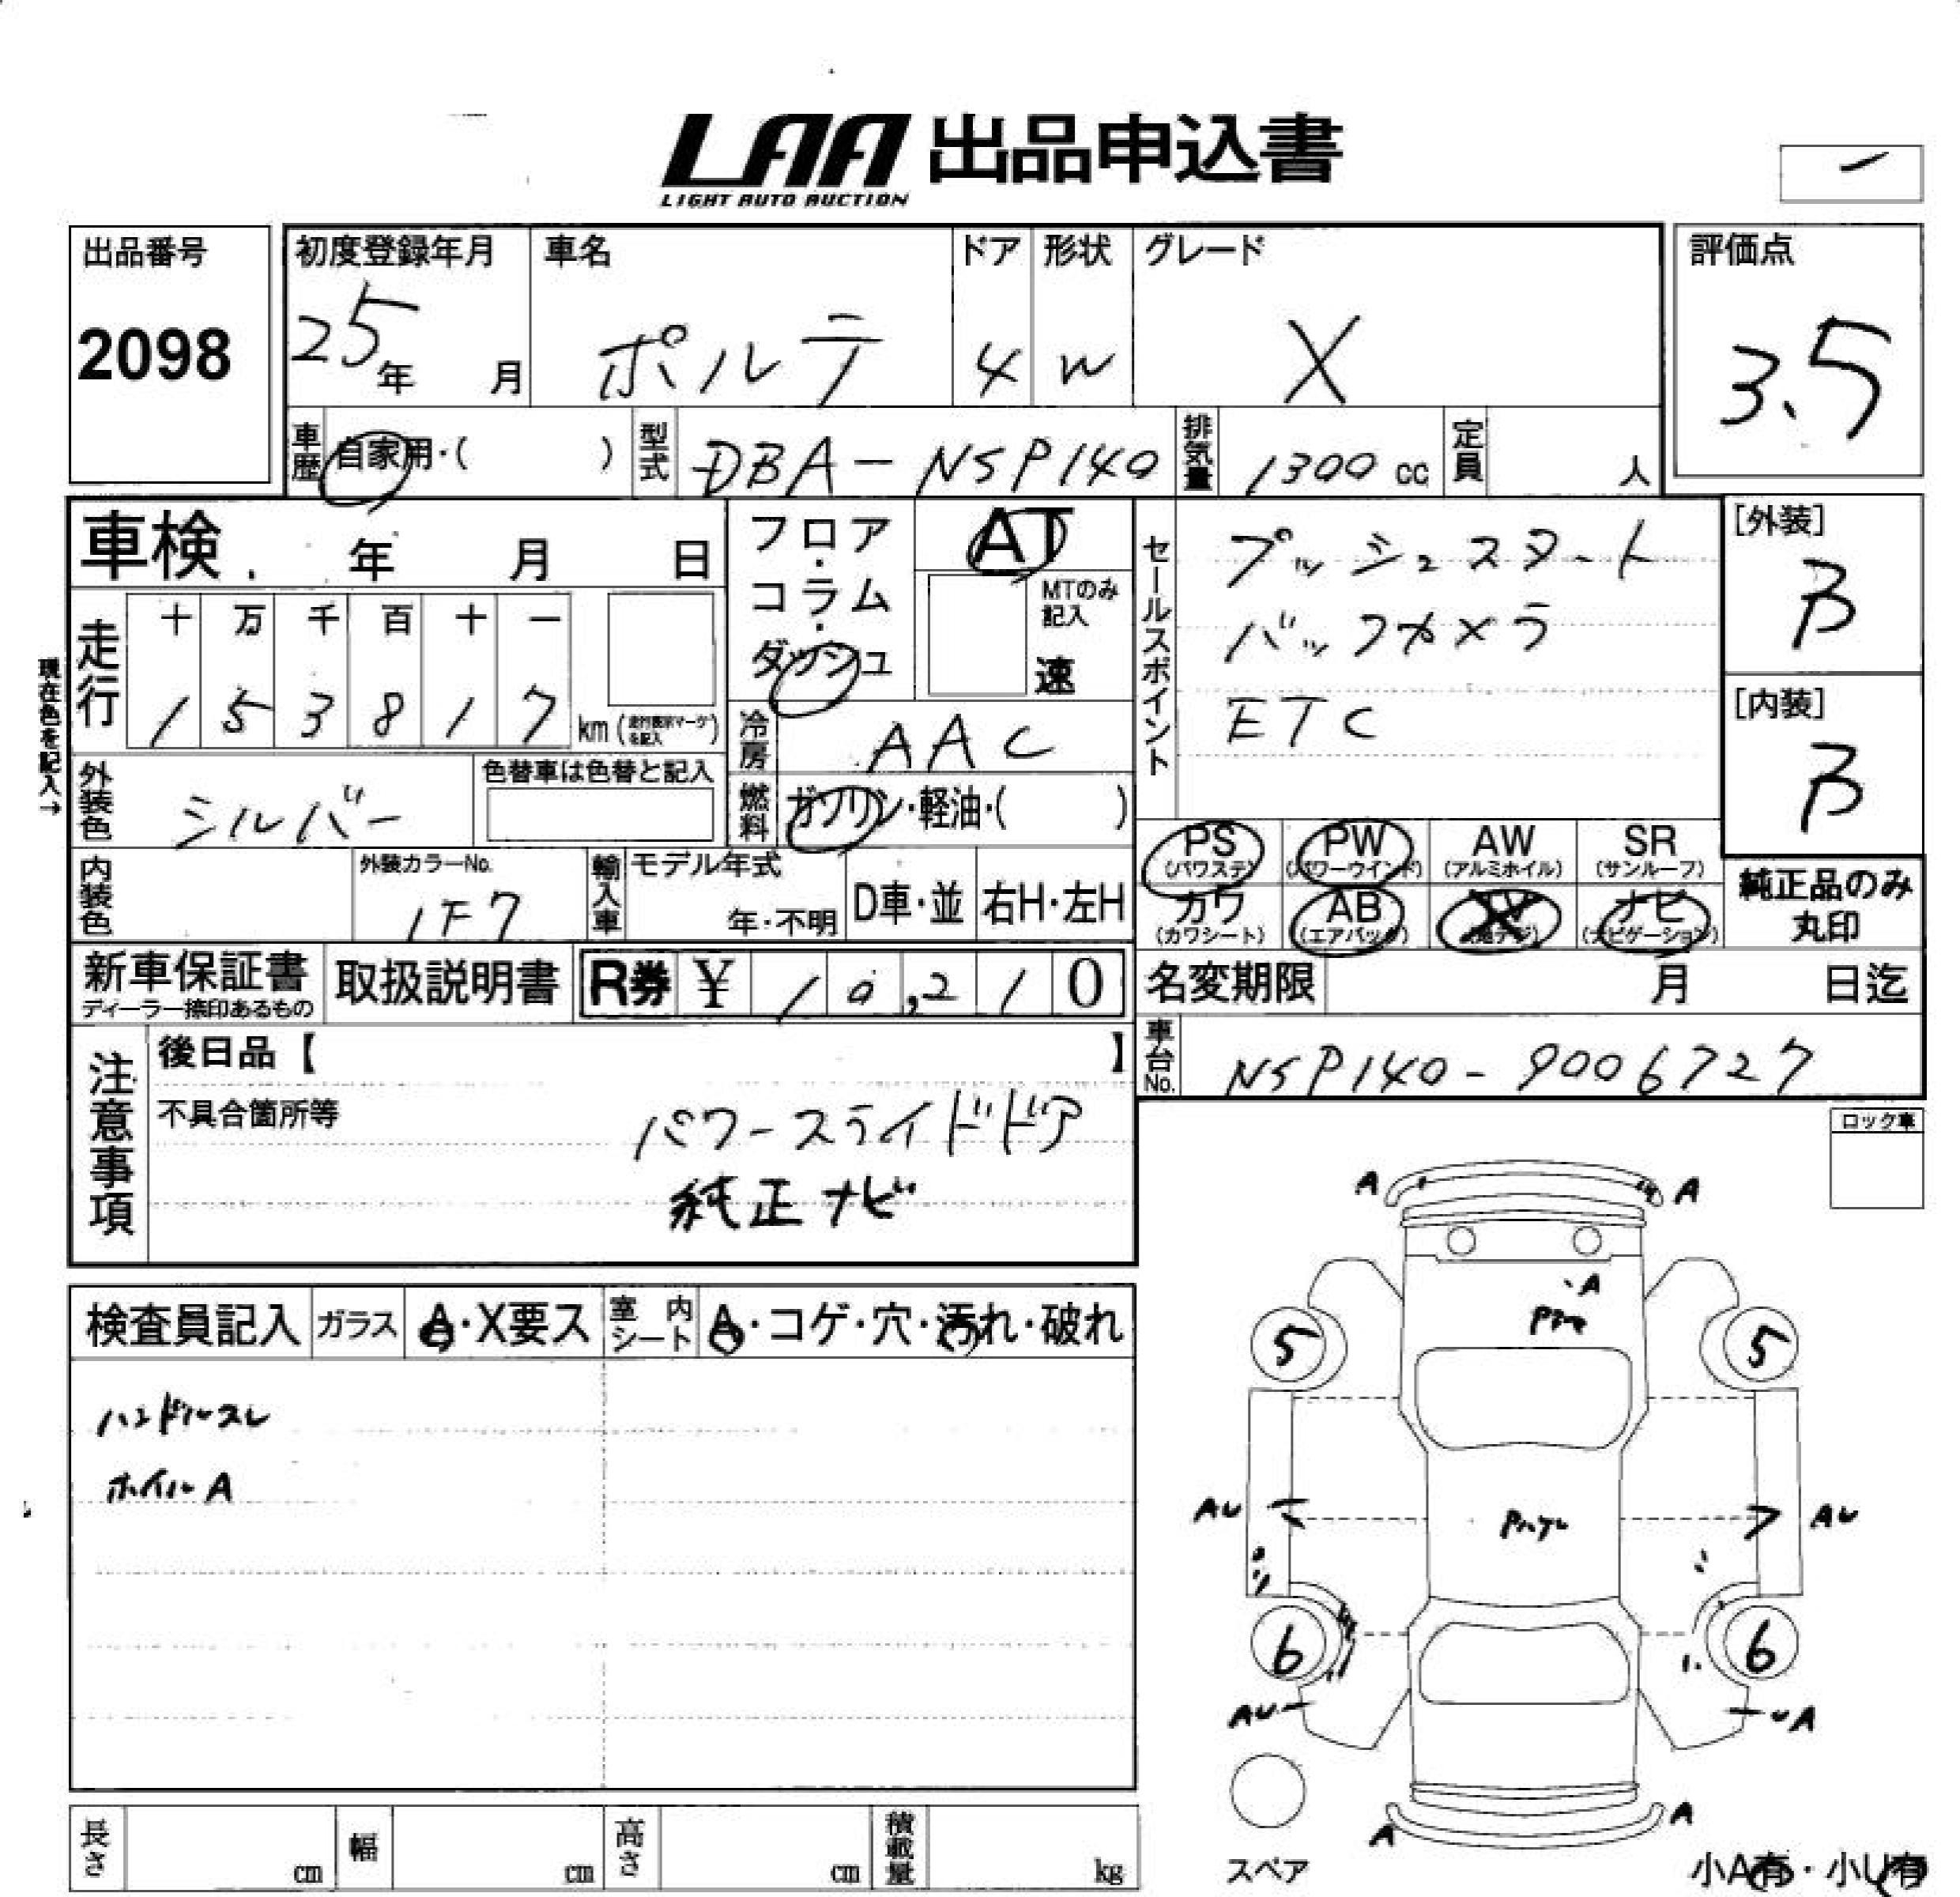 LAA 出品申込書
LIGHT AUTO AUCTION
出品番号
2098
初度登録年月
25年 月
車名
ポルテ
ドア
4
形状
W
グレード
X
評価点
3.5
車歴 自家用・( )
型式 DBA-NSP140
排気量 1300 cc
定員 人
車検 年 月 日
フロア・コラム・ダッシュ
AT
MTのみ記入
速
セールスポイント
プッシュスタート
バックカメラ
ETC
[外装]
B
[内装]
B
現在色を記入→
走行
十 万 千 百 十 一
1 5 3 8 1 7 km (走行表示マークを記入)
冷房 AAC
外装色 シルバー
色替車は色替と記入
燃料 ガソリン・軽油・( )
PS (パワステ)
PW (パワーウインド)
AW (アルミホイル)
SR (サンルーフ)
カワ (カワシート)
AB (エアバック)
TV (地デジ)
ナビ (ナビゲーション)
純正品のみ
丸印
内装色
外装カラーNo.
1F7
輸入車
モデル年式
年・不明
D車・並
右H・左H
新車保証書
ディーラー捺印あるもの
取扱説明書
R券 ¥ 10,210
名変期限 月 日迄
車台No. NSP140-9006727
注意事項
後日品【 】
不具合箇所等
パワースライドドア
純正ナビ
ロック車
検査員記入
ガラス A・X要ス
室内シート A・コゲ・穴・汚れ・破れ
ハンドルスレ
ホイルA
A A
A
5 5
AU AU
6 6
AU UA
A A
スペア
小A有・小U有
長さ cm
幅 cm
高さ cm
積載量 kg